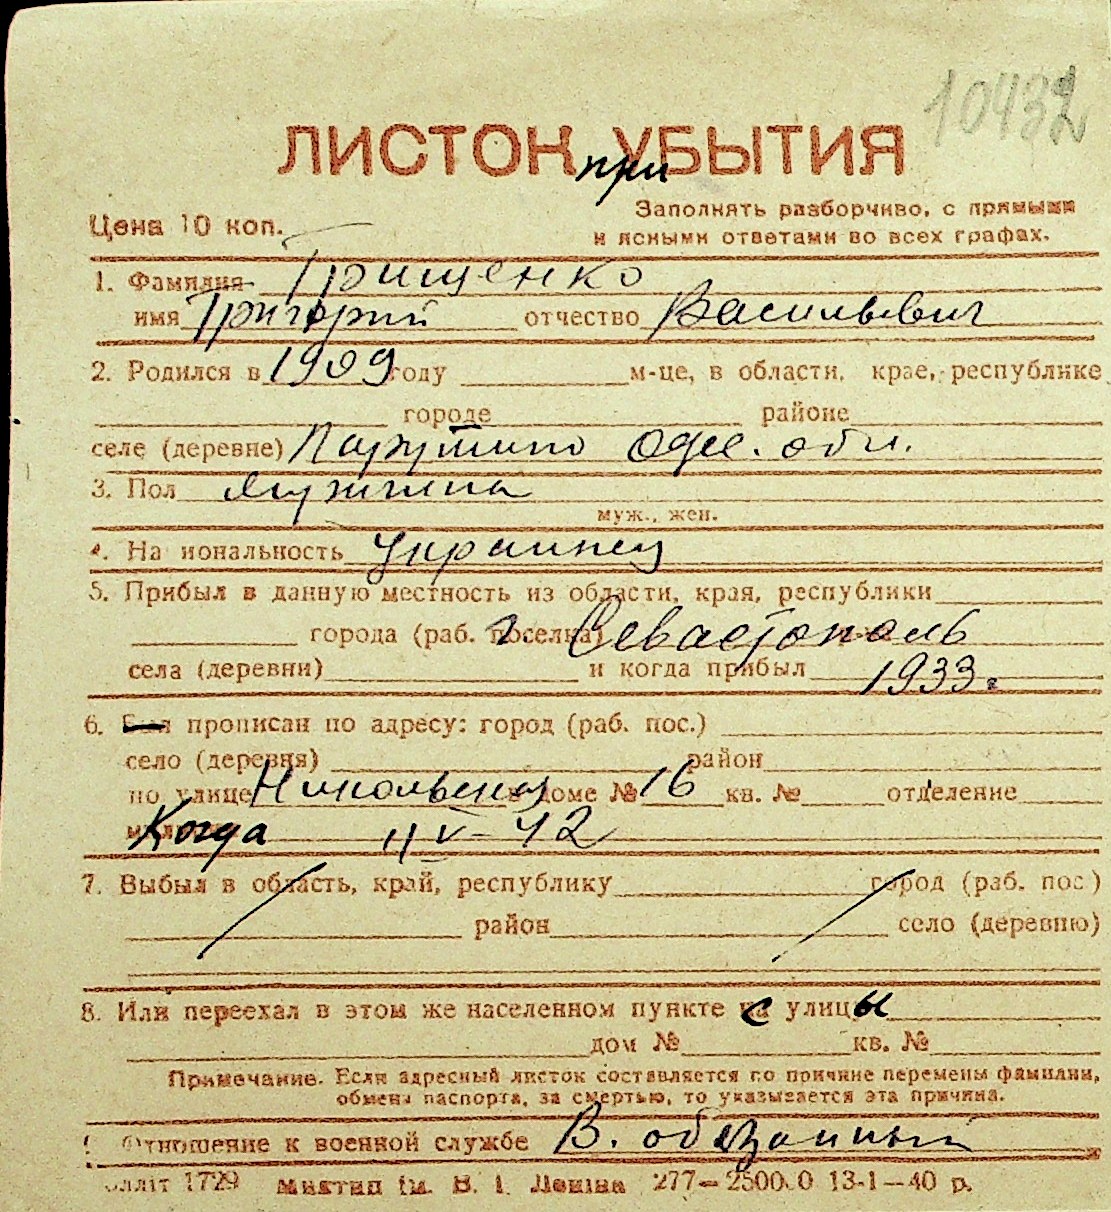 10432
ЛИСТОК УБЫТИЯ
при
Цена 10 коп.
Заполнять разборчиво, с прямыми
и ясными ответами во всех графах.
1. Фамилия Грищенко
имя Григорий отчество Васильевич
2. Родился в 1909 году м-це, в области, крае, республике
городе районе
селе (деревне) Парутино Оде. обл.
3. Пол мужчина
муж., жен.
4. На иональность Украинец
5. Прибыл в данную местность из области, края, республики
города (раб. поселка) г Севастополь
села (деревни) и когда прибыл 1933 г
6. Был прописан по адресу: город (раб. пос.)
село (деревня) район
по улице Никольской в доме № 16 кв. № отделение
Когда 11 V-42
7. Выбыл в область, край, республику город (раб. пос.)
район село (деревню)
8. Или переехал в этом же населенном пункте с улицы
дом № кв. №
Примечание. Если адресный листок составляется по причине перемены фамилии,
обмена паспорта, за смертью, то указывается эта причина.
9 Отношение к военной службе В. обязанный
олліт 1729 Миктип ім. В. І. Леніна 277—2500.0 13-1—40 р.